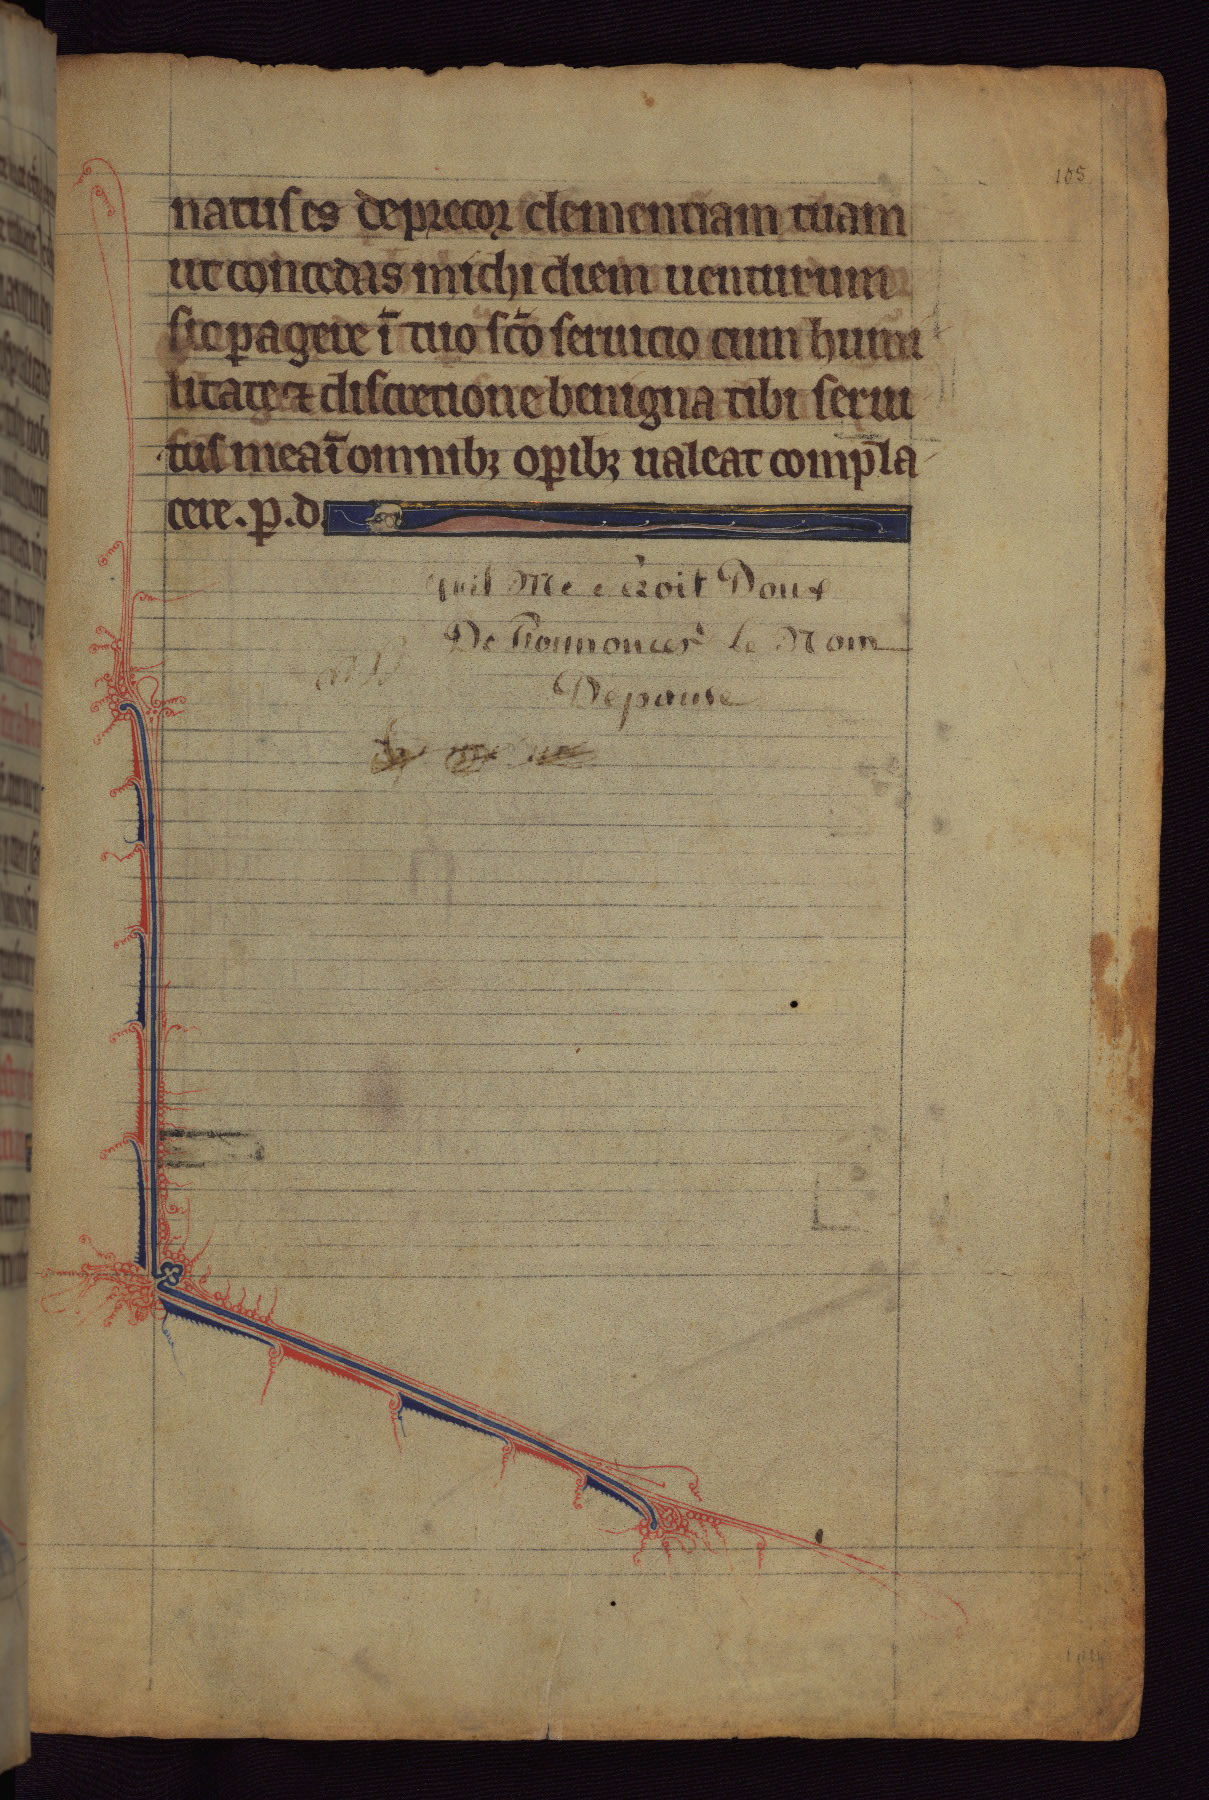 105
natus es deprecor clementiam tuam
ut concedas michi diem uenturum
sic pagere ī tuo sc̄o seruicio cum humi
litate ⁊ discretione benigna tibi serui
tus mea ī omnibꝫ opibꝫ ualeat compla
cere. p. d.
quil Me seroit Doux
De Prononcer le Nom
Depouse